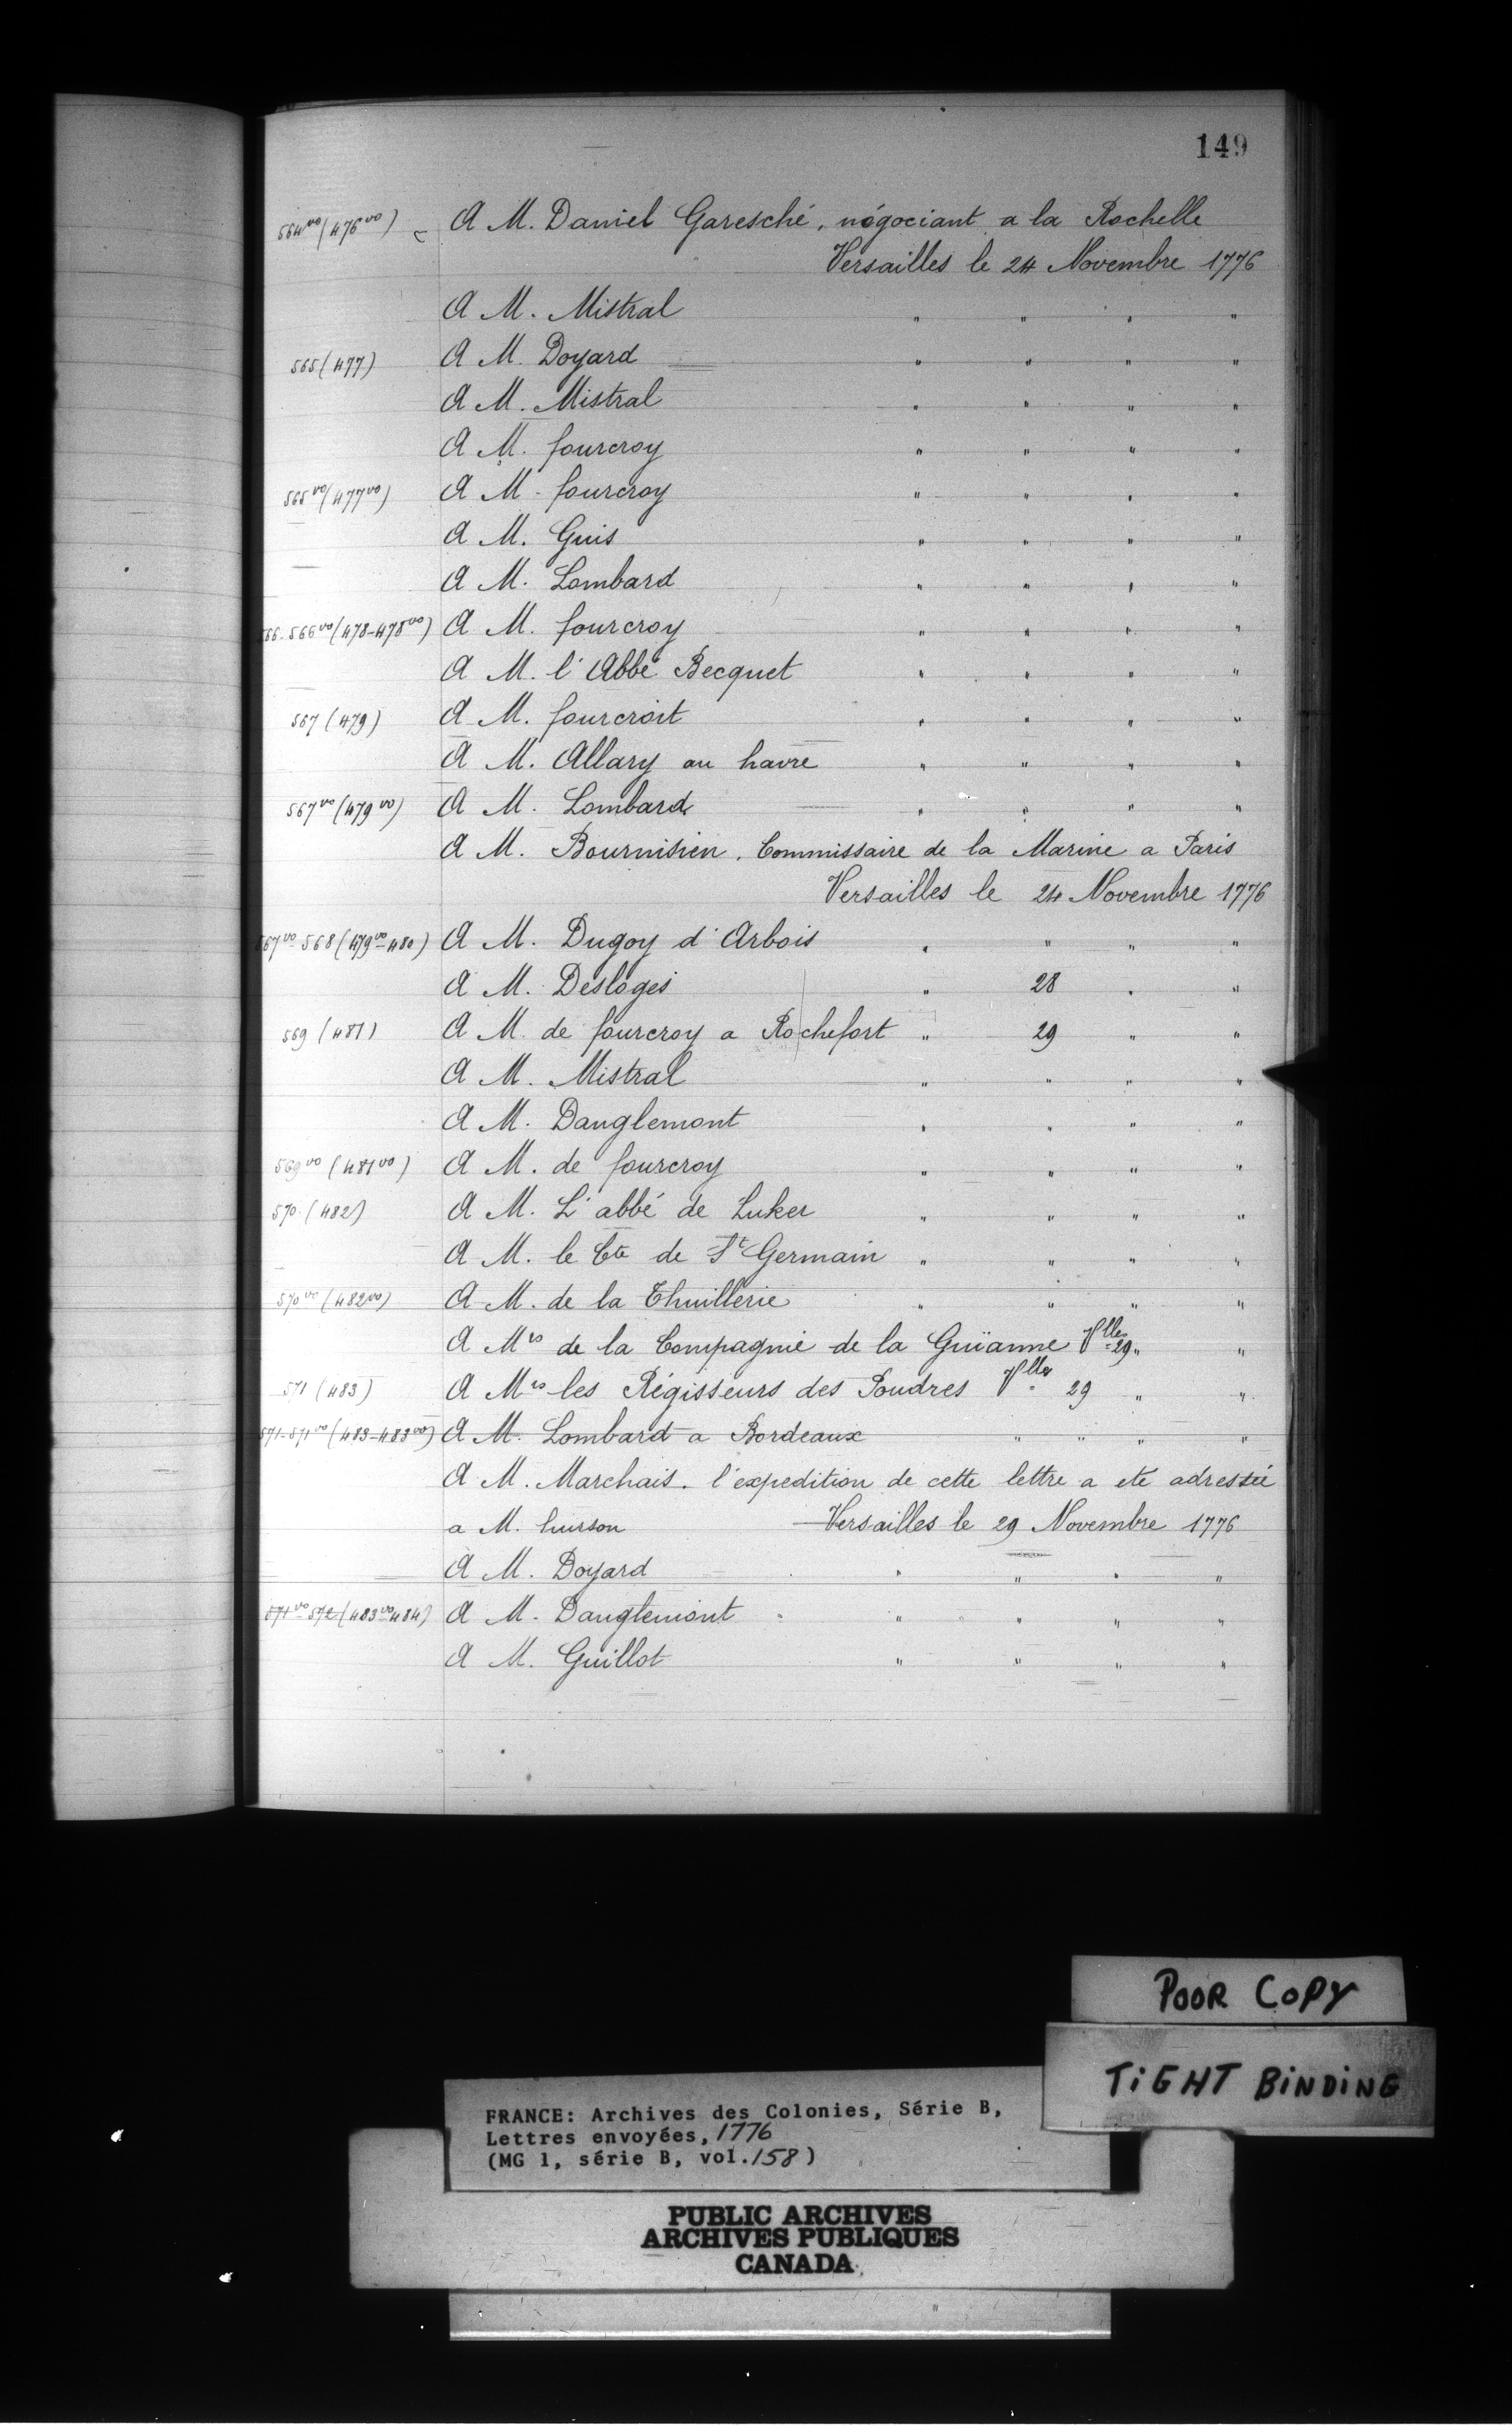 149
564vo (476vo) A M. Daniel Garesché, négociant a la Rochelle
Versailles le 24 Novembre 1776
A M. Mistral " " " "
565 (477) A M. Doyard " " " "
A M. Mistral " " " "
A M. fourcroy " " " "
565vo (477vo) A M. fourcroy " " " "
A M. Guis " " " "
A M. Lombard " " " "
566-566vo (478-478vo) A M. fourcroy " " " "
A M. l'Abbé Becquet " " " "
567 (479) A M. fourcroit " " " "
A M. Allary au havre " " " "
567vo (479vo) A M. Lombard " " " "
A M. Bournisien, Commissaire de la Marine a Paris
Versailles le 24 Novembre 1776
567vo-568 (479vo-480) A M. Dugoy d'Arbois " " " "
A M. Desloges " 28 " "
569 (481) A M. de fourcroy a Rochefort " 29 " "
A M. Mistral " " " "
A M. Danglemont " " " "
569vo (481vo) A M. de fourcroy " " " "
570 (482) A M. L'abbé de Luker " " " "
A M. le Cte de St Germain " " " "
570vo (482vo) A M. de la Thuillerie " " " "
A Mrs de la Compagnie de la Guïanne Vlles 29 " "
571 (483) A Mrs les Régisseurs des Poudres Vlles 29 " "
571-571vo (483-483vo) A M. Lombard a Bordeaux " " " "
A M. Marchais. l'expedition de cette lettre a ete adressée
a M. hurson Versailles le 29 Novembre 1776
A M. Doyard " " " "
571vo-572 (483vo-484) A M. Danglemont " " " "
A M. Guillot " " " "
POOR COPY
TIGHT BINDING
FRANCE: Archives des Colonies, Série B,
Lettres envoyées, 1776
(MG 1, série B, vol. 158)
PUBLIC ARCHIVES
ARCHIVES PUBLIQUES
CANADA